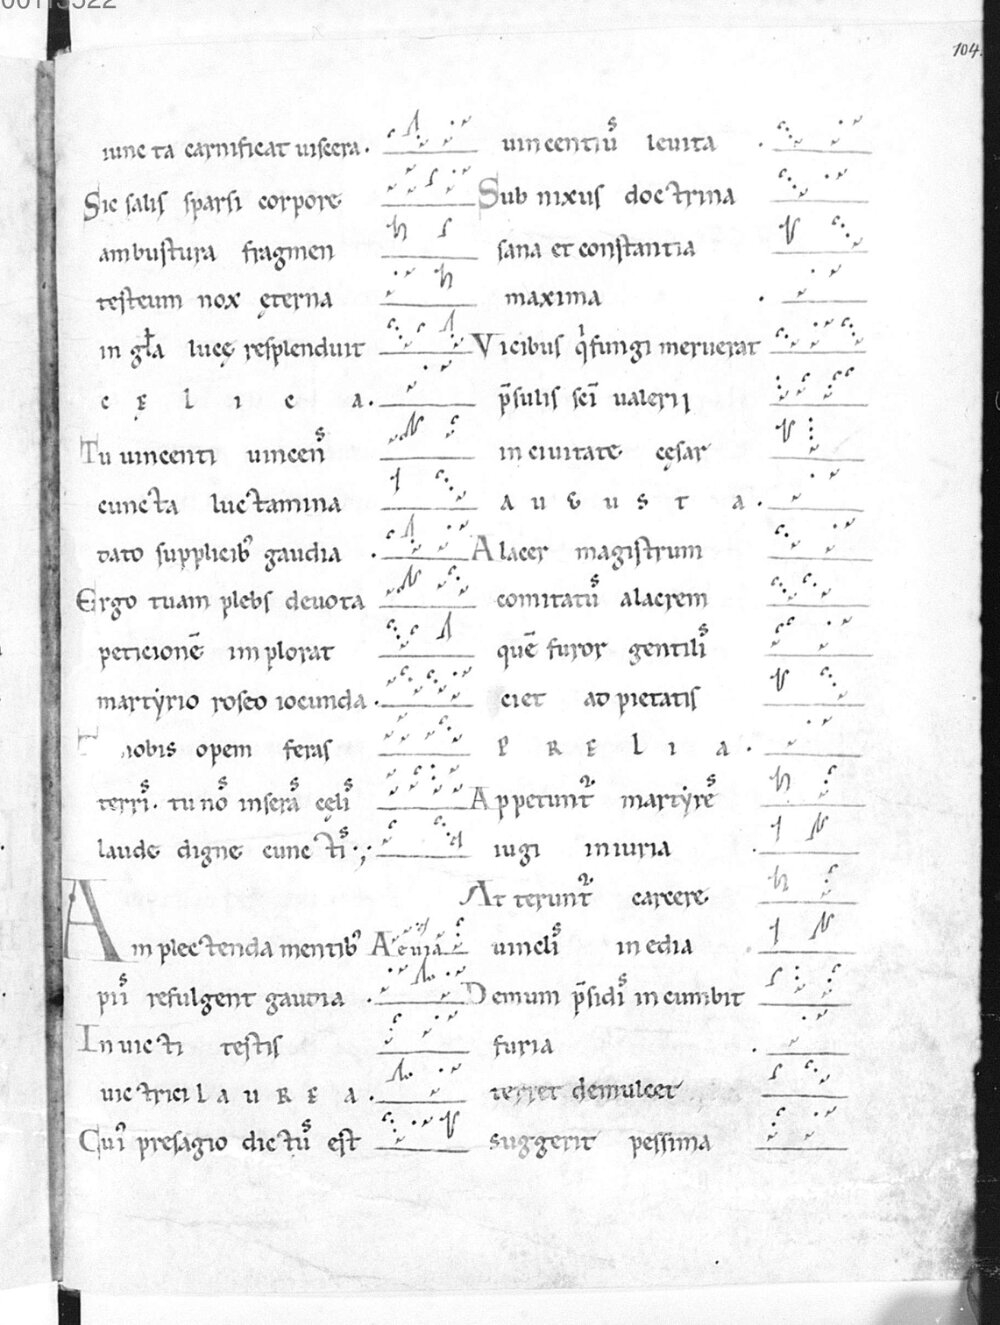 104.
iuncta carnificat uiscera.
Sic salis sparsi corpore
ambustura fragmen
testeum nox ęterna
in gła lucę resplenduit
c ę l i c a.
Tu uincenti uincens̄
cuncta luctamina
dato supplicib' gaudia
Ergo tuam plebs deuota
peticionē implorat
martyrio roseo iocunda.
nobis opem feras
terris. tu nos inseras cęlis
laude digne cunctis.;
Amplectenda mentib' Aeuia
piis refulgent gaudia.
Inuicti testis
uictrici L A U R E A.
Cui' presagio dictus est
uincentius leuita.
Subnixus doctrina
sana et constantia
maxima.
Vicibus q'fungi meruerat
p̄sulis sc̄i ualerij
in ciuitate cęsar
A U G U S T A.
Alacer magistrum
comitatus alacrem
quē furor gentilis
ciet ad pietatis
P R E L I A.
Appetunt' martyres
iugi iniuria.
Atterunt' carcere
uinclis inedia
Demum p̄sidis incumbit
furia.
terret demulcet
suggerit pessima